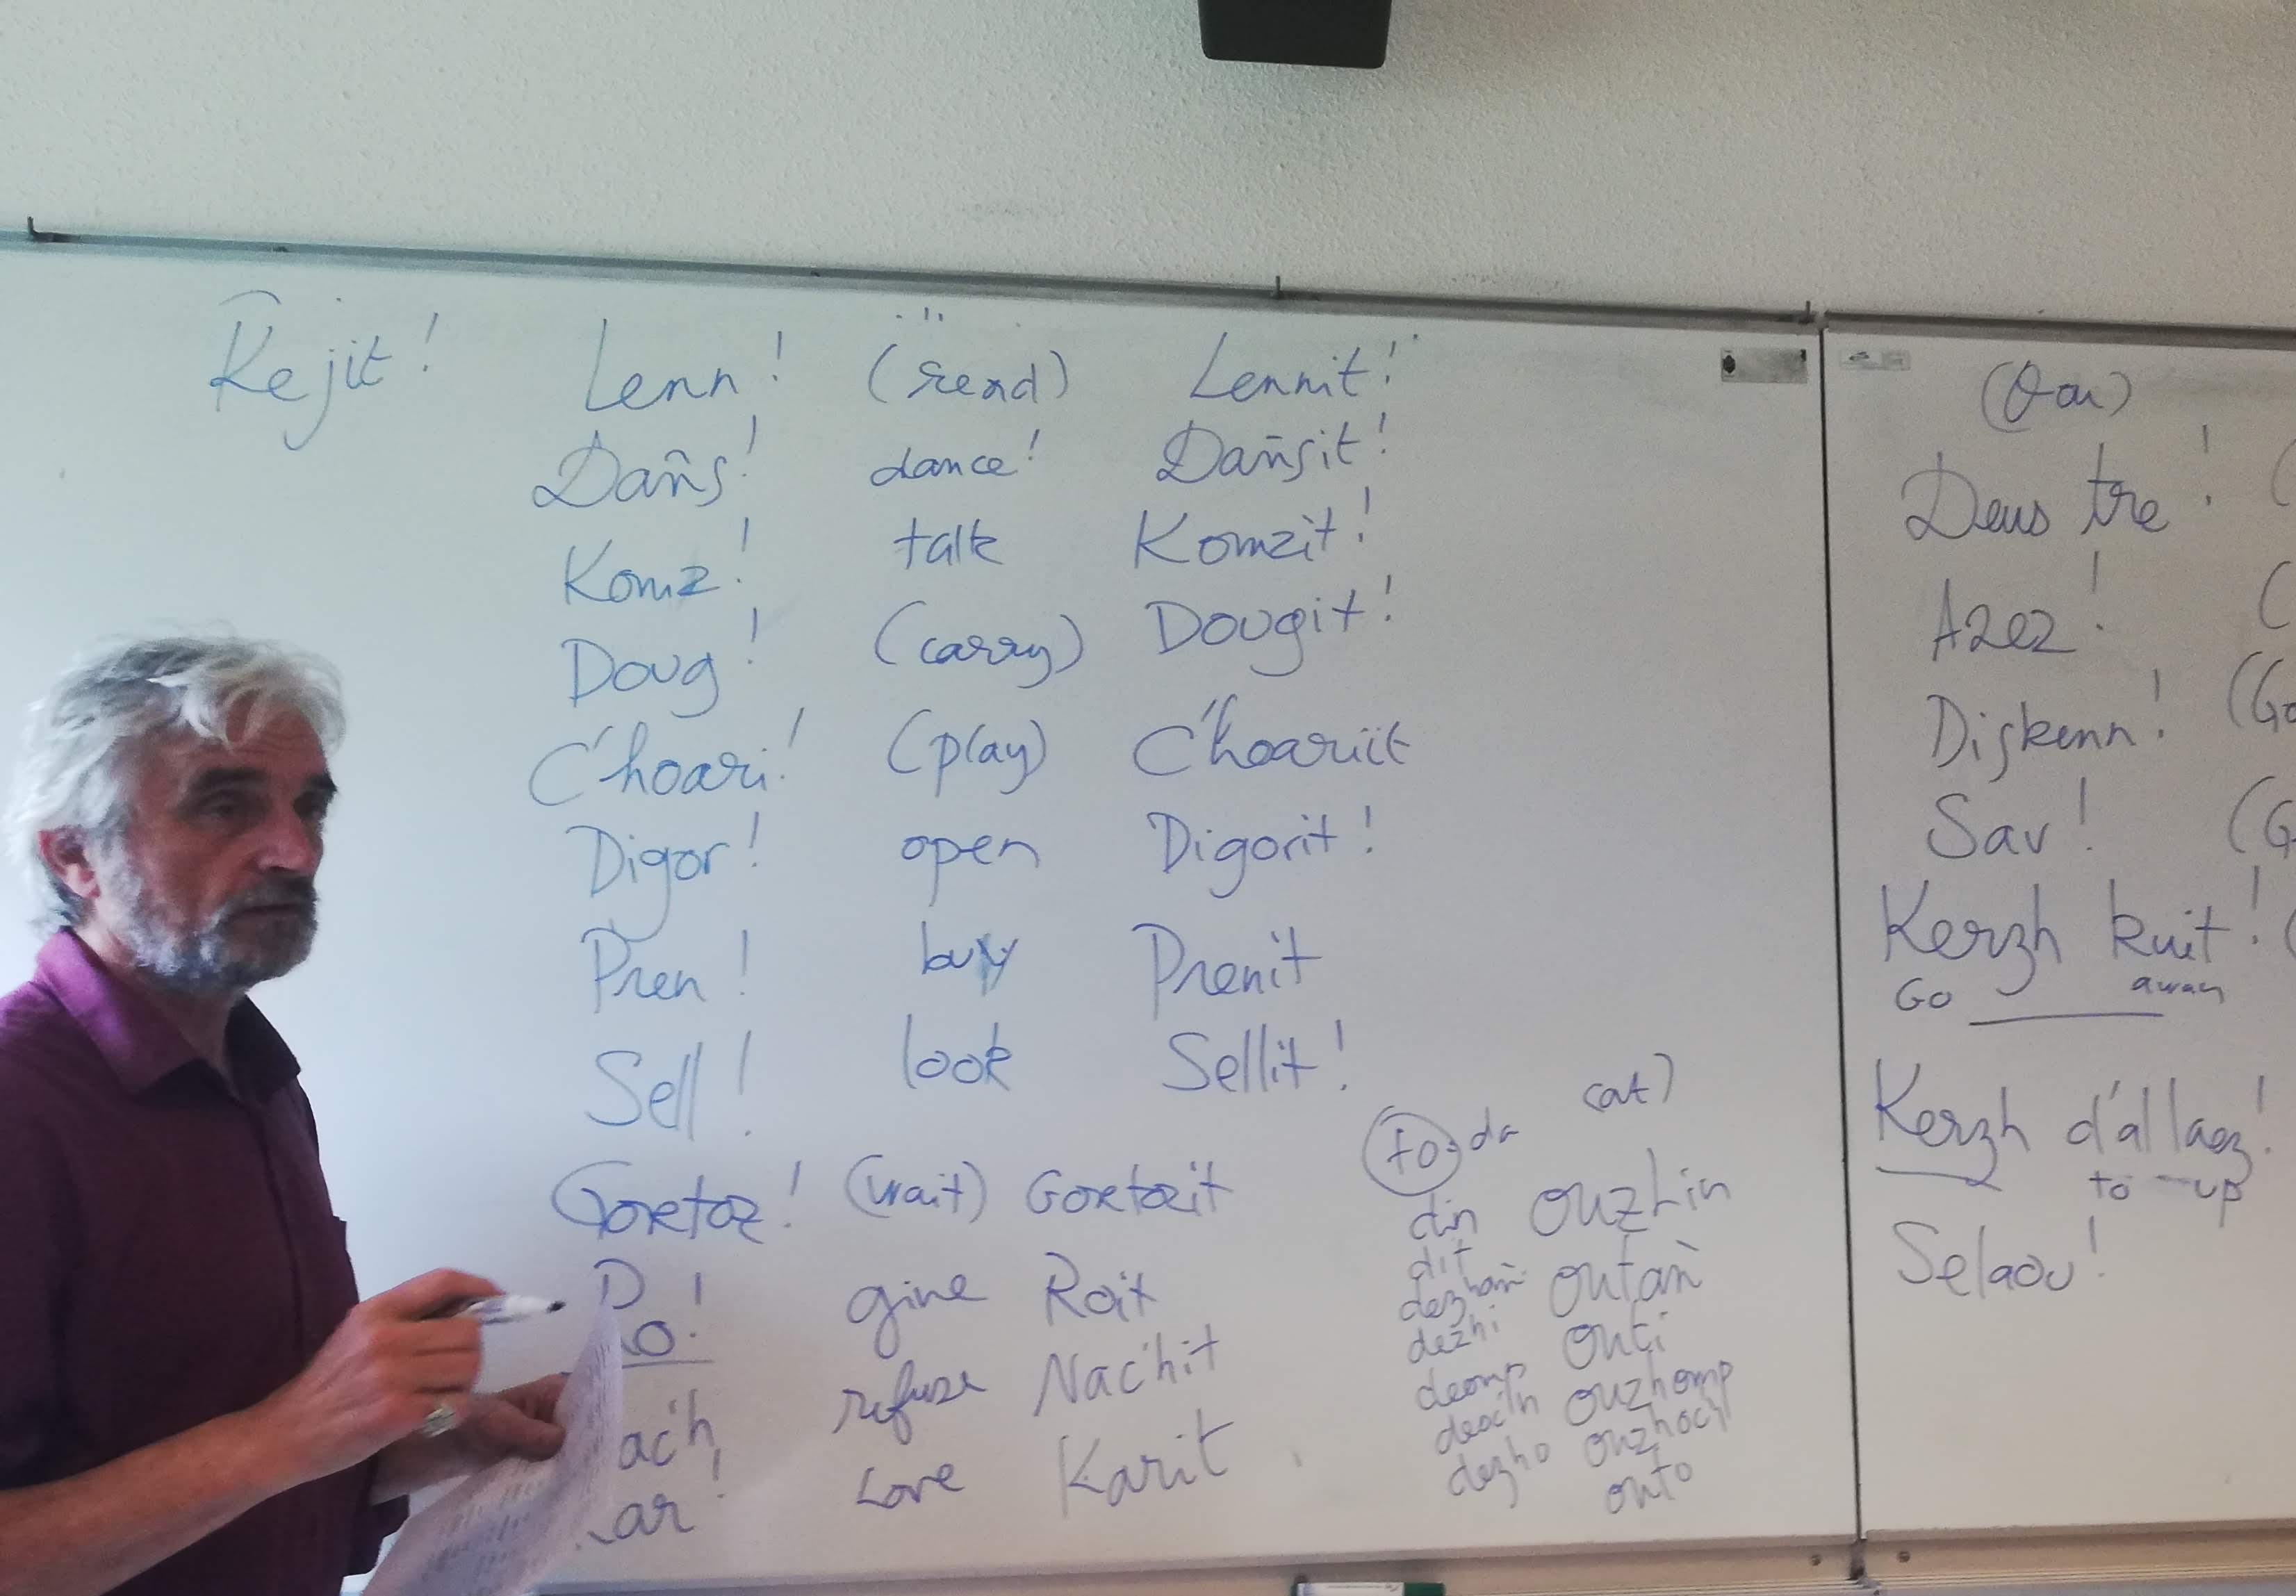 Kejit! Lenn! (read) Lennit!
Dañs! dance! Dañsit!
Komz! talk Komzit!
Doug! (carry) Dougit!
C'hoari! (play) C'hoariit
Digor! open Digorit!
Pren! buy Prenit
Sell! look Sellit!
Gortoz! (wait) Gortozit
Ro! give Roit
ac'h refuse Nac'hit
ar! love Karit
(at)
to da
din ouzhin
dit
dezhañ outañ
dezhi outi
deomp ouzhomp
deoc'h ouzhoc'h
dezho outo
Deus tre! (
Azez! (
Diskenn! (Go
Sav! (G
Kerzh kuit! (
Go away
Kerzh d'al laez!
to up
Selaou!